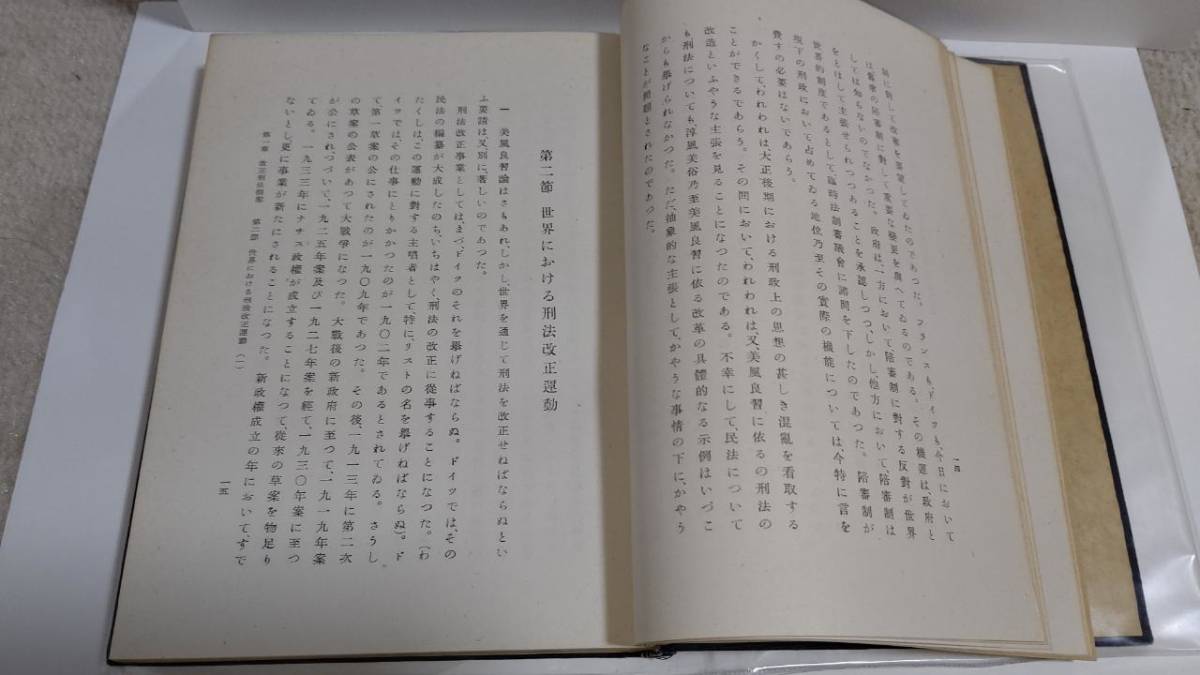 一四
制に對して改審を要望してゐたのであつた。フランスも、ドイツも、今日において
は舊來の陪審制に對して重要な變更を與へてゐるのである。その機運は、政府と
しては知らないのでなかつた。政府は、一方において陪審制に對する反對が世界
をとほして主張せられつつあることを承認しつつ、しかし、他方において、陪審制は
世界的制度であるとして臨時法制審議會に諮問を下したのであつた。陪審制が
現下の刑政において占めてゐる地位乃至その實際の機能については、今特に言を
費すの必要はないであらう。
かくして、われわれは、大正後期における刑政上の思想の甚しき混亂を看取する
ことができるであらう。その間において、われわれは、又、美風良習に依るの刑法の
改造といふやうな主張を見ることになつたのである。不幸にして、民法について
も刑法についても、淳風美俗乃至美風良習に依る改革の具體的なる示例はいづこ
からも擧げられなかつた。ただ、抽象的な主張として、かやうな事情の下に、かやう
なことが問題とされたのであつた。
第二節 世界における刑法改正運動
一 美風良習論はさもあれ、しかし、世界を通じて刑法を改正せねばならぬとい
ふ要請は、又、別に、著しいのであつた。
刑法改正事業としては、まづ、ドイツのそれを擧げねばならぬ。ドイツでは、その
民法の編纂が大成したのち、いちはやく、刑法の改正に從事することになつた。(わ
たくしは、この運動に對する主唱者として、特に、リストの名を擧げねばならぬ)。ド
イツでは、その仕事にとりかかつたのが一九〇二年であるとされてゐる。さうし
て、第一草案の公にされたのが一九〇九年であつた。その後、一九一三年に第二次
の草案の公表があつて大戰爭になつた。大戰後の新政府に至つて、一九一九年案
が公にされ、つづいて、一九二五年案及び一九二七年案を經て、一九三〇年案に至つ
てゐる。一九三三年にナチス政權が成立することになつて、從來の草案を物足り
ないとし、更に事業が新たにされることになつた。新政權成立の年において、すで
第一章 改正刑法假案 第二節 世界における刑法改正運動 (一)
一五